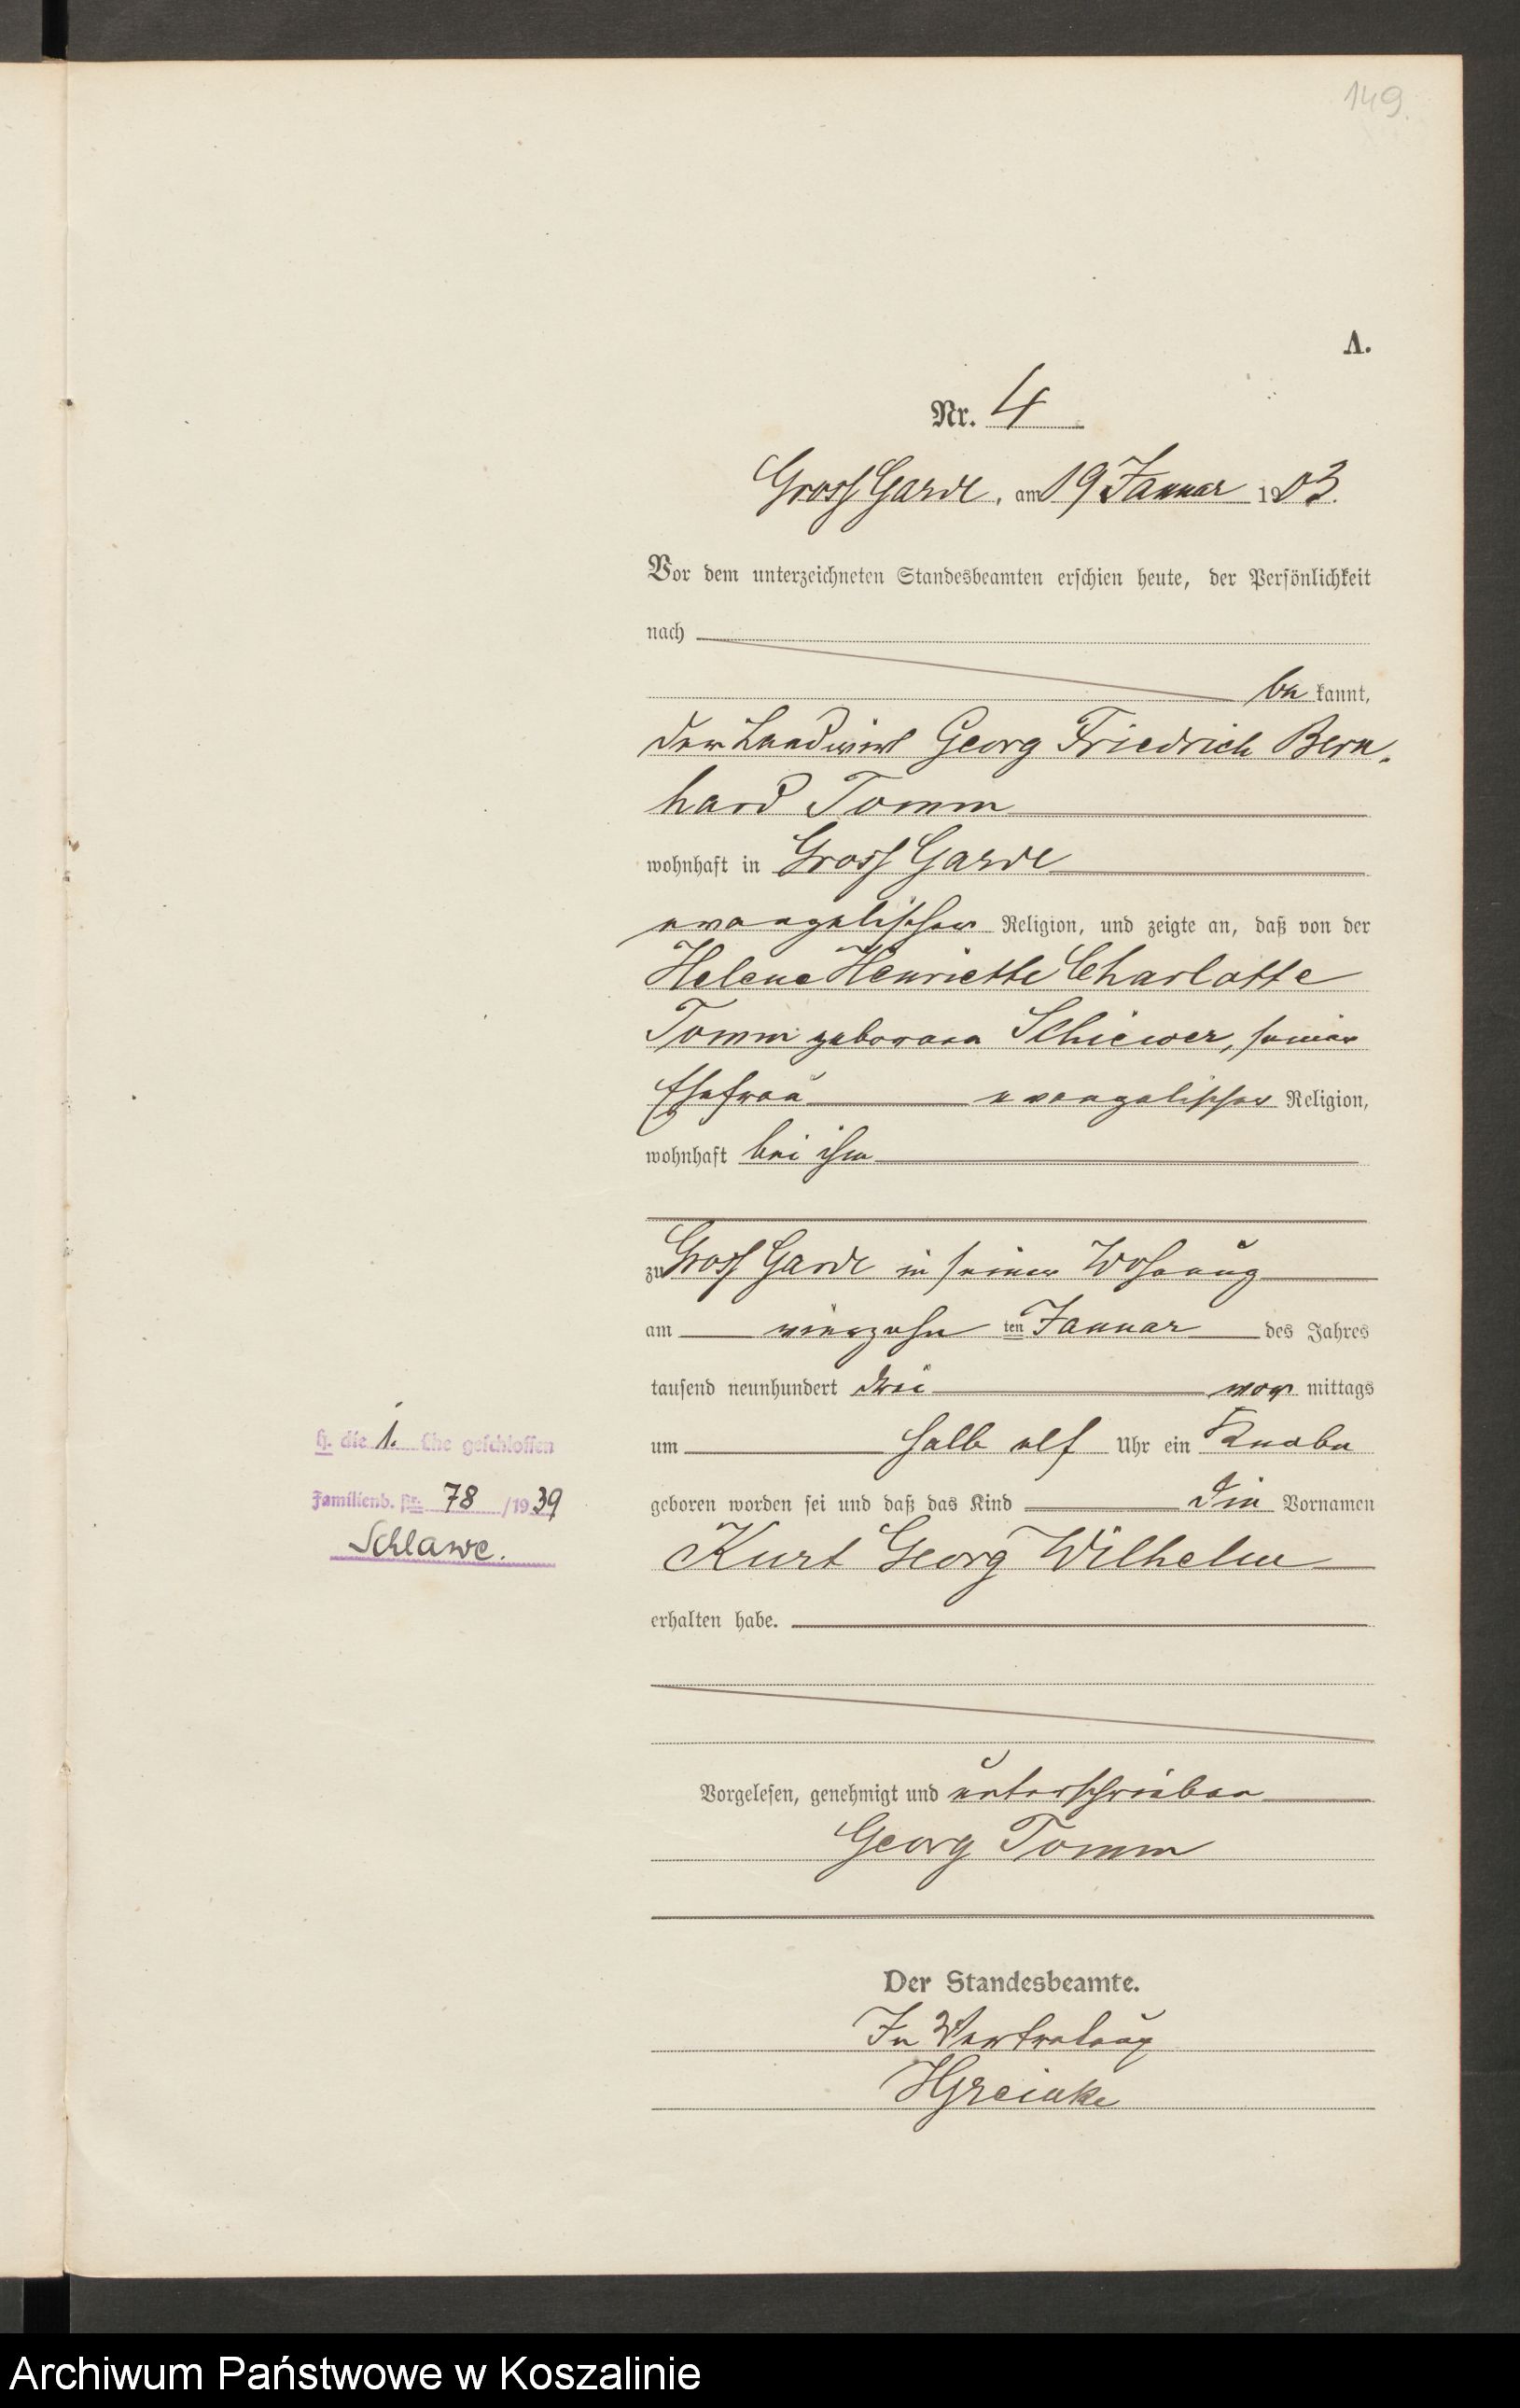 149.
A.
Nr. 4
Gross Garde, am 19 Januar 1903.
Vor dem unterzeichneten Standesbeamten erschien heute, der Persönlichkeit
nach
be kannt,
der Landwirt Georg Friedrich Bern-
hard Tomm
wohnhaft in Gross Garde
evangelischer Religion, und zeigte an, daß von der
Helene Henriette Charlotte
Tomm geborenen Schiewer, seiner
Ehefrau evangelischer Religion,
wohnhaft bei ihm
zu Gross Garde in seiner Wohnung
am vierzehn ten Januar des Jahres
tausend neunhundert drei vor mittags
um halb elf Uhr ein Knabe
geboren worden sei und daß das Kind die Vornamen
Kurt Georg Wilhelm
erhalten habe.
Vorgelesen, genehmigt und unterschrieben
Georg Tomm
Der Standesbeamte.
In Vertretung
HGreinke
H. die 1. Ehe geschlossen
Familienb. Nr. 78 /1939
Schlawe.
Archiwum Państwowe w Koszalinie